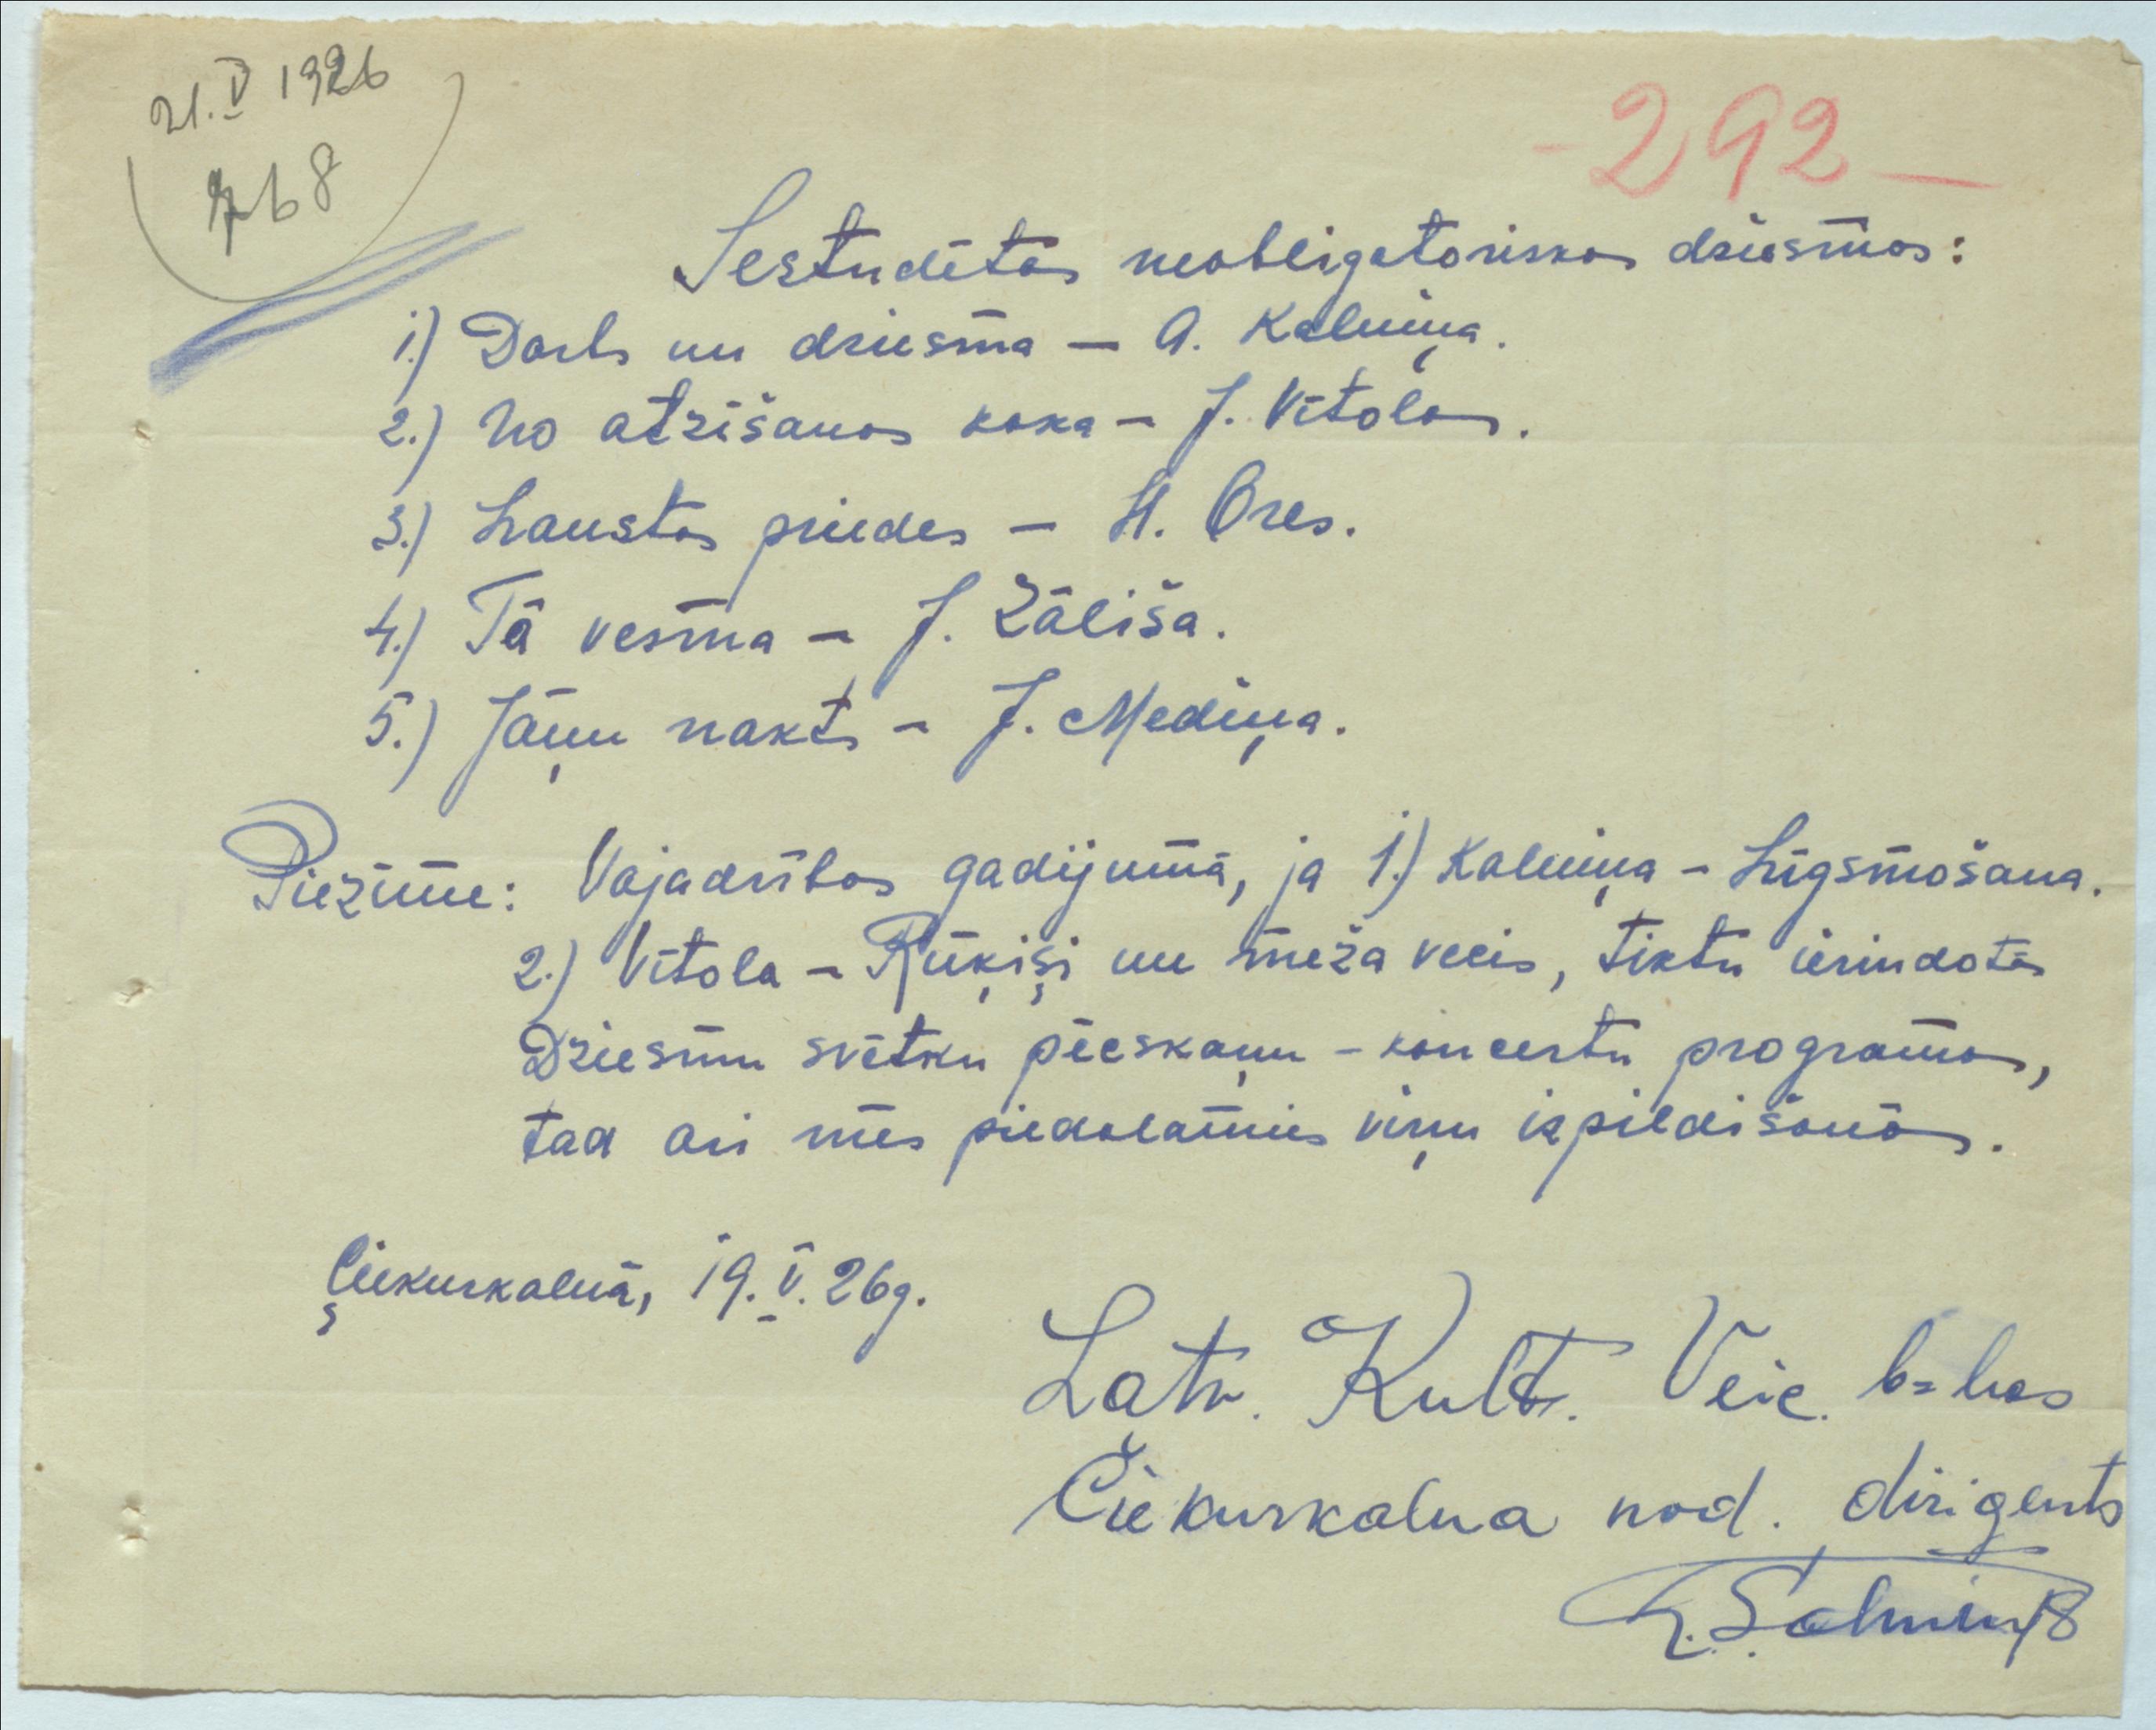 21.V 1926
768
-292-
Iestudētās neobligatoriskas dziesmas:
1.) Darbs un dziesma – A. Kalniņa.
2.) No atzīšanas koka – J. Vītola.
3.) Lauztas priedes – H. Ores.
4.) Tā vēsma – J. Zālīša.
5.) Jāņu nakts – J. Mediņa.
Piezīme: Vajadzības gadijumā, ja 1.) Kalniņa – Līgsmošana.
2.) Vītola – Rūķīši un meža vecis, tiktu ierindotas
Dziesmu svētku pēcskaņu – koncertu programās,
tad ari mēs piedalamies viņu izpildišanā.
Çiekurkalnā, 19.V.26g.
Latv. Kult. Veic. b=bas
Čiekurkalna nod. dirigents